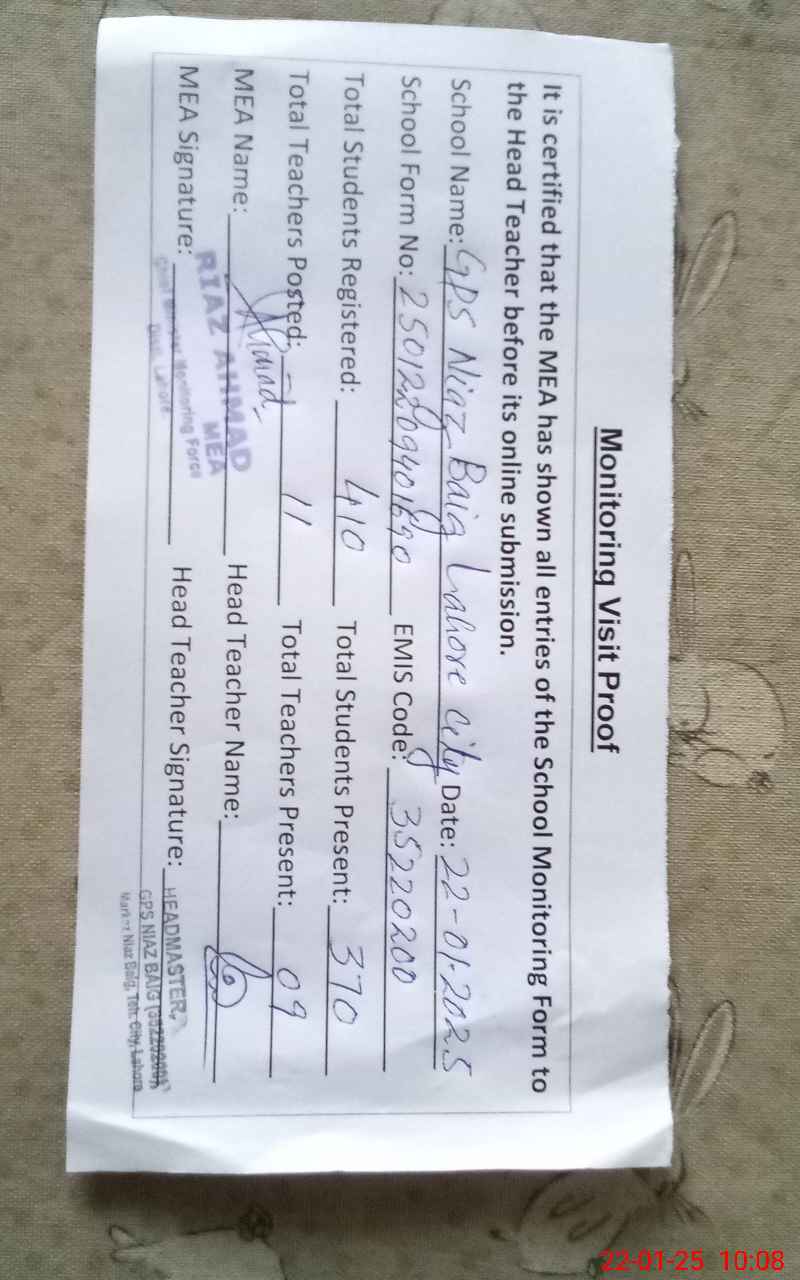 Monitoring Visit Proof
It is certified that the MEA has shown all entries of the School Monitoring Form to
the Head Teacher before its online submission.
School Name: GPS Niaz Baig Lahore City Date: 22-01-2025
School Form No: EMIS Code: 35220200
Total Students Registered: 410 Total Students Present: 370
Total Teachers Posted: 11 Total Teachers Present: 09
MEA Name: Head Teacher Name:
RIAZ AHMAD
MEA
MEA Signature: Head Teacher Signature:
Chief Minister Monitoring Force
Distt. Lahore
HEADMASTER
GPS NIAZ BAIG (35220200)
Markaz Niaz Baig, Teh. City, Lahore
22-01-25 10:08